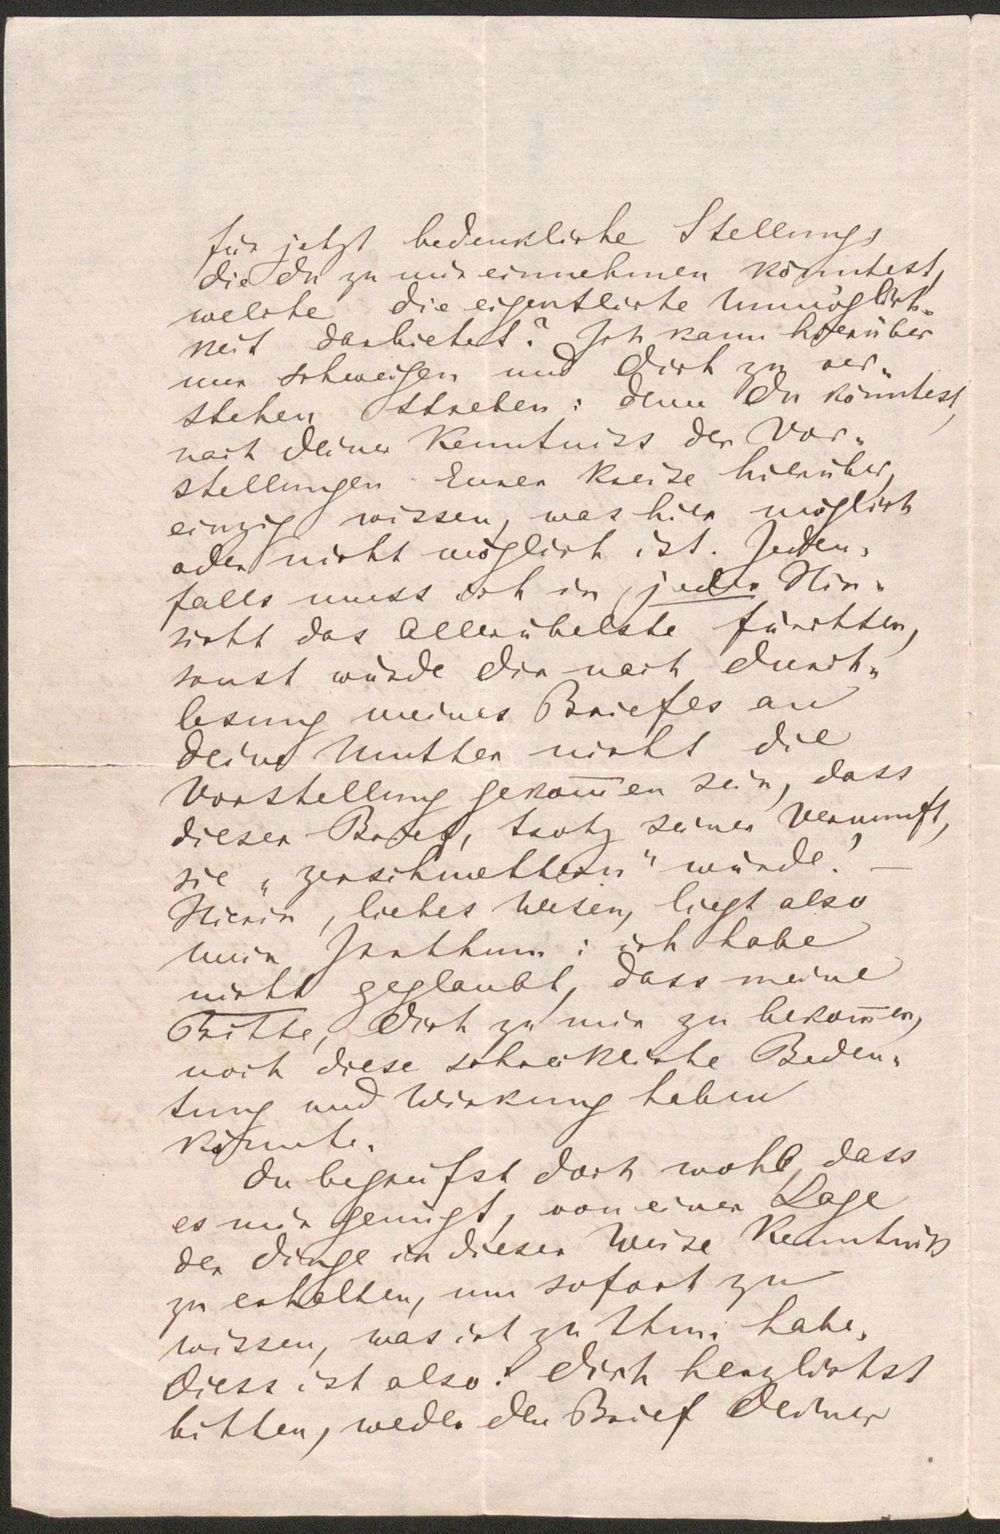 für jetzt bedenkliche Stellung,
die du zu mir einnehmen könntest,
welche die eigentliche Unmöglich-
keit darbietet? Ich kann hierüber
nur schweigen und Dich zu ver-
stehen streben: denn Du könntest,
nach Deiner Kenntniss der Vor-
stellungen Eurer Kreise hierüber,
einzig wissen, was hier möglich
oder nicht möglich ist. Jeden-
falls muss ich in jeder Hin-
sicht das Allerübelste fürchten,
sonst würde Dir nach Durch-
lesung meines Briefes an
Deine Mutter nicht die
Vorstellung gekom̄en sein, dass
dieser Brief, trotz seiner Vernunft,
sie „zerschmettern" würde. —
Hierin, liebes Wesen, liegt also
mein Irrthum: ich habe
nicht geglaubt, dass meine
Bitte, Dich zu mir zu bekom̄en,
noch diese schreckliche Bedeu-
tung und Wirkung haben
könnte.
Du begreifst doch wohl, dass
es mir genügt, von einer Lage
der Dinge in dieser Weise Kenntniss
zu erhalten, um sofort zu
wissen, was ich zu thun habe.
Diess ist also: Dich herzlichst
bitten, weder den Brief Deiner